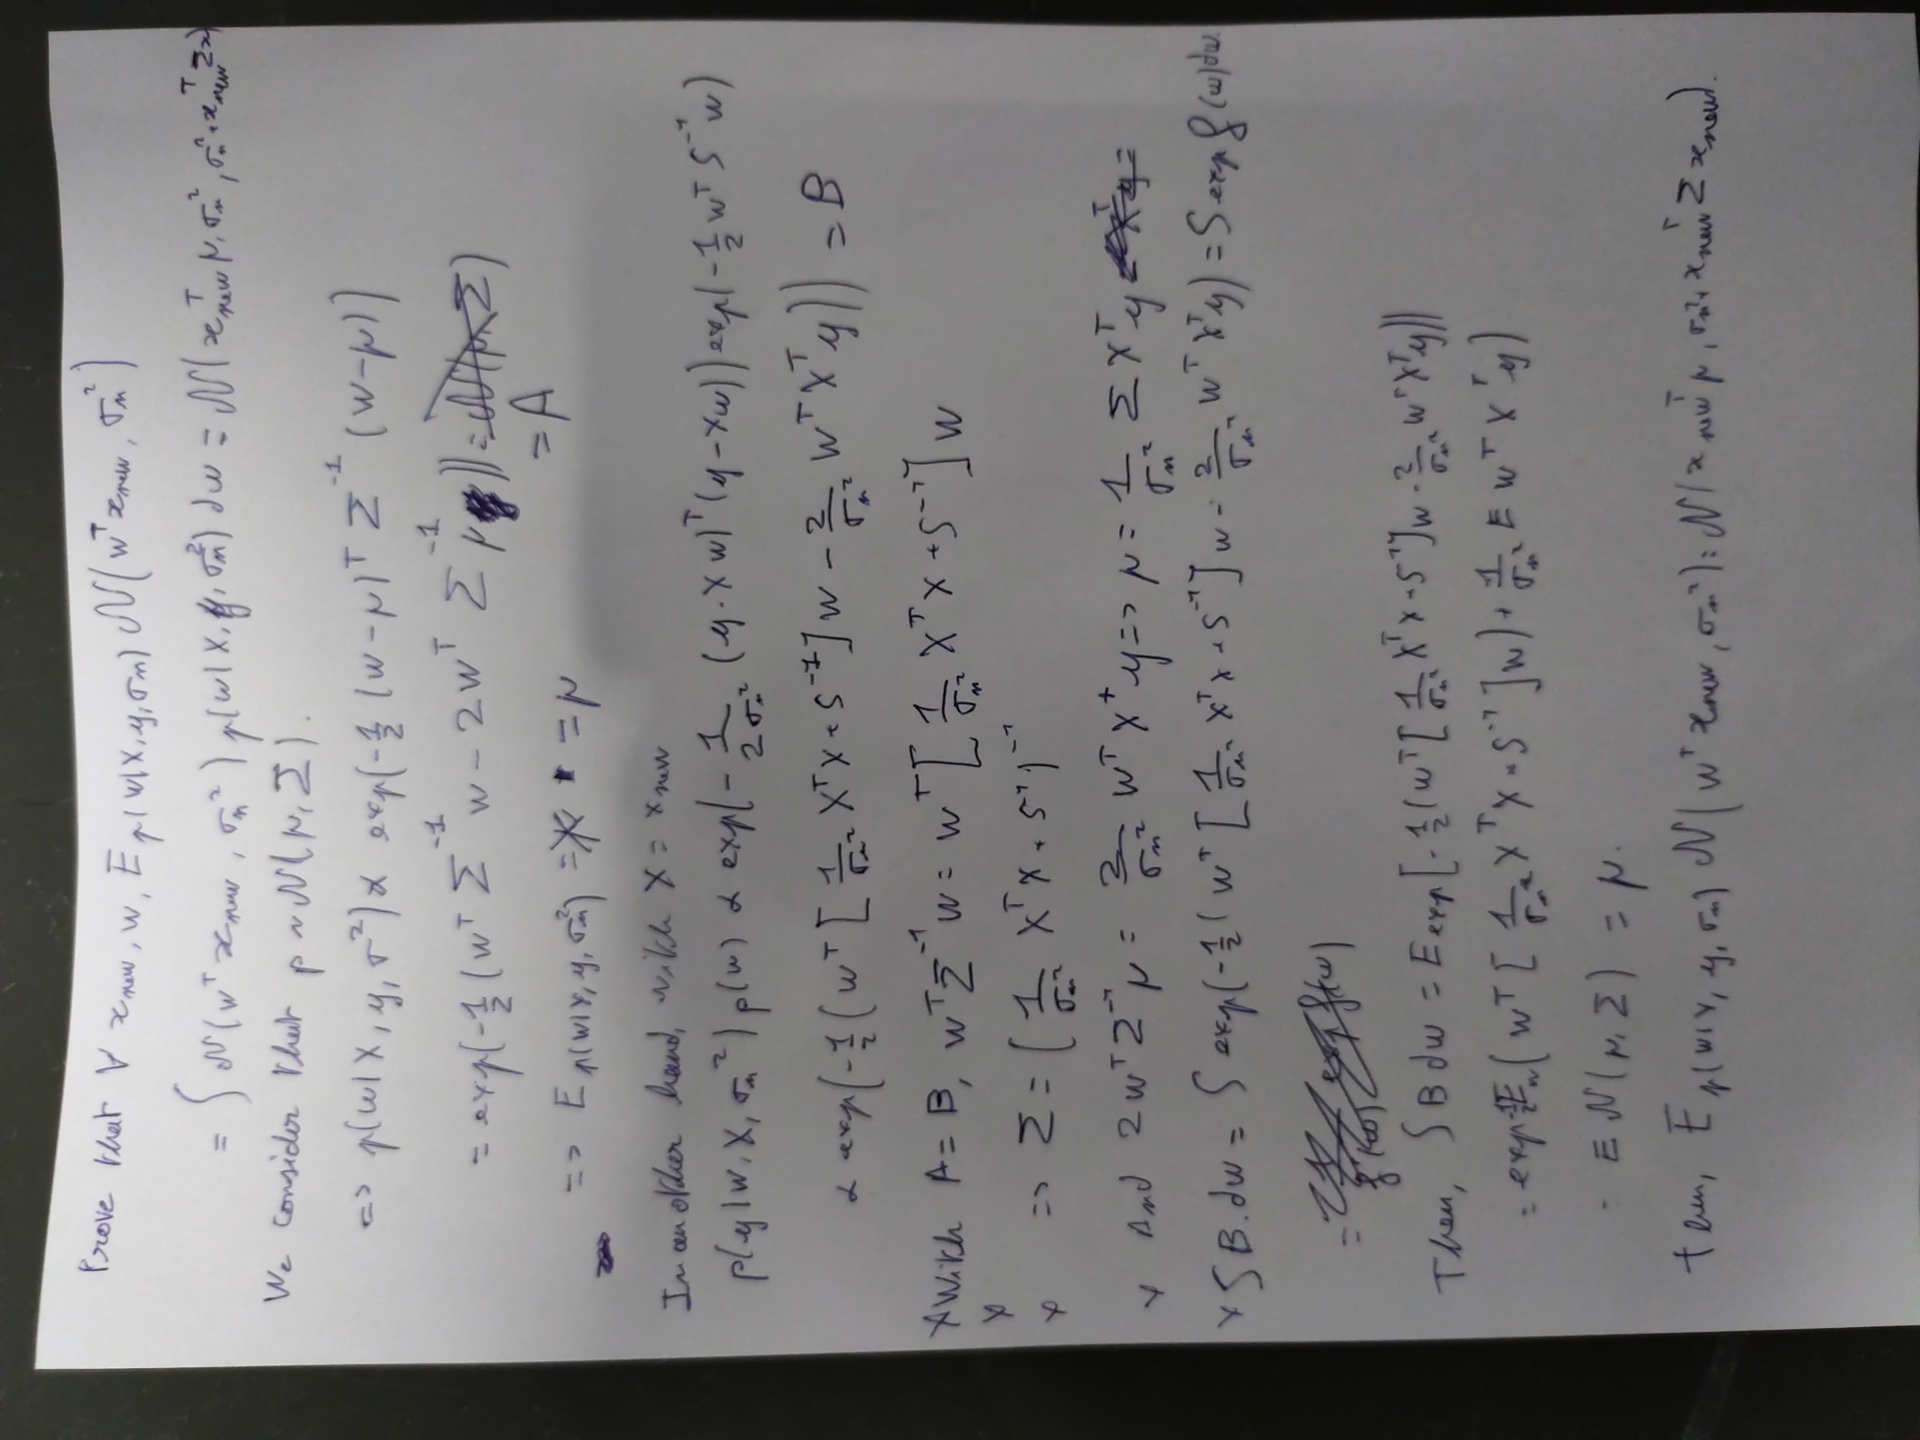 Prove that ∀ x_new, w, E_p(w|X,y,σ_n) N(w^T x_new, σ_n^2)
= ∫ N(w^T x_new, σ_n^2) p(w|X, y, σ_n^2) dw = N(x_new^T μ, σ_n^2, σ_n^2 + x_new^T Σ x)
We consider that p ~ N(μ, Σ).
=> p(w|X, y, σ^2) α exp(-1/2 (w-μ)^T Σ^-1 (w-μ))
= exp(-1/2 (w^T Σ^-1 w - 2w^T Σ^-1 μ)) =
= A
=> E_p(w|X, y, σ_n^2) = = μ
In an other hand, with X = x_new
p(y|w, X, σ_n^2) p(w) α exp(-1/(2σ_n^2) (y-Xw)^T (y-Xw)) exp(-1/2 w^T S^-1 w)
α exp(-1/2 (w^T [1/σ_n^2 X^T X + S^-1] w - 2/σ_n^2 w^T X^T y)) = B
x With A = B, w^T Σ^-1 w = w^T [1/σ_n^2 X^T X + S^-1] w
x
x => Σ = (1/σ_n^2 X^T X + S^-1)^-1
x And 2w^T Σ^-1 μ = 2/σ_n^2 w^T X^+ y => μ = 1/σ_n^2 Σ X^T y
x ∫ B.dw = ∫ exp(-1/2 (w^T [1/σ_n^2 X^T X + S^-1] w - 2/σ_n^2 w^T X^T y) = ∫ exp f(w) dw.
=
Then, ∫ B dw = E exp[-1/2 (w^T [1/σ_n^2 X^T X + S^-1] w - 2/σ_n^2 w^T X^T y))
= exp -1/2 E (w^T [1/σ_n^2 X^T X + S^-1] w) + 1/σ_n^2 E w^T X^T y)
= E N(μ, Σ) = μ.
then, E_p(w|X, y, σ_n) N(w^T x_new, σ_n^2) = N(x_new^T μ, σ_n^2 + x_new^T Σ x_new).